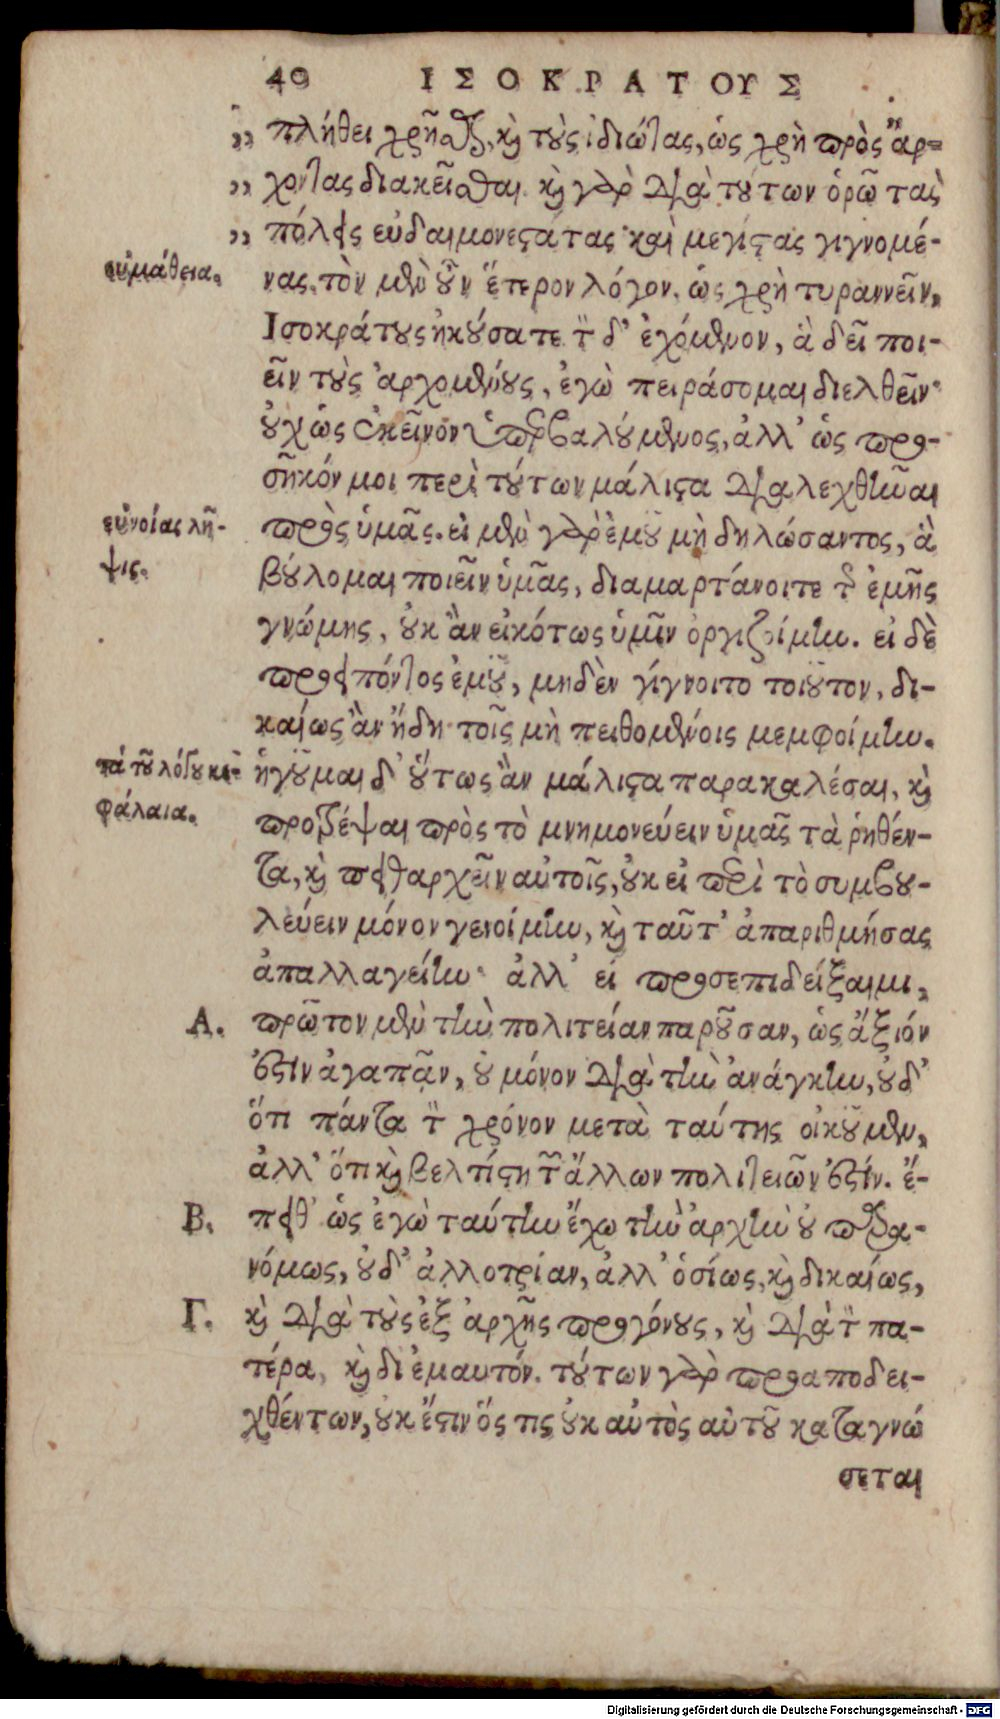 40 ΙΣΟΚΡΑΤΟΥΣ
„ πλήθει χρῆσθαι, καὶ τοὺς ἰδιώτας, ὡς χρὴ πρὸς ἄρ-
„ χοντας διακεῖσθαι. καὶ γὰρ διὰ τούτων ὁρῶ τὰς
„ πόλεις εὐδαιμονεστάτας καὶ μεγίστας γιγνομέ-
εὐμάθεια.
νας. τὸν μὲν οὖν ἕτερον λόγον, ὡς χρὴ τυραννεῖν,
Ἰσοκράτους ἠκούσατε. τὸν δ' ἐχόμενον, ἃ δεῖ ποι-
εῖν τοὺς ἀρχομένους, ἐγὼ πειράσομαι διελθεῖν·
οὐχ ὡς ἐκεῖνον ὑπερβαλούμενος, ἀλλ' ὡς προ-
σῆκόν μοι περὶ τούτων μάλιστα διαλεχθῆναι
εὐνοίας λῆ-
ψις.
πρὸς ὑμᾶς. εἰ μὲν γὰρ ἐμοῦ μὴ δηλώσαντος, ἃ
βούλομαι ποιεῖν ὑμᾶς, διαμαρτάνοιτε τῆς ἐμῆς
γνώμης, οὐκ ἂν εἰκότως ὑμῖν ὀργιζοίμην. εἰ δὲ
προειπόντος ἐμοῦ, μηδὲν γίγνοιτο τοιοῦτον, δι-
καίως ἂν ἤδη τοῖς μὴ πειθομένοις μεμφοίμην.
τὰ τοῦ λόγου κε-
φάλαια.
ἡγοῦμαι δ' οὕτως ἂν μάλιστα παρακαλέσαι, καὶ
προτρέψαι πρὸς τὸ μνημονεύειν ὑμᾶς τὰ ῥηθέν-
τα, καὶ πειθαρχεῖν αὐτοῖς, οὐκ εἰ περὶ τὸ συμβου-
λεύειν μόνον γενοίμην, καὶ ταῦτ' ἀπαριθμήσας
ἀπαλλαγείην· ἀλλ' εἰ προσεπιδείξαιμι,
Α. πρῶτον μὲν τὴν πολιτείαν παροῦσαν, ὡς ἄξιόν
ἐστιν ἀγαπᾷν, οὐ μόνον διὰ τὴν ἀνάγκην, οὐδ'
ὅτι πάντα τὸν χρόνον μετὰ ταύτης οἰκοῦμεν,
ἀλλ' ὅτι καὶ βελτίστη τῶν ἄλλων πολιτειῶν ἐστίν. ἔ-
Β. πειθ' ὡς ἐγὼ ταύτην ἔχω τὴν ἀρχὴν οὐ παρα-
νόμως, οὐδ' ἀλλοτρίαν, ἀλλ' ὁσίως, καὶ δικαίως,
Γ. καὶ διὰ τοὺς ἐξ ἀρχῆς προγόνους, καὶ διὰ τὸν πα-
τέρα, καὶ δι' ἐμαυτόν. τούτων γὰρ προαποδει-
χθέντων, οὐκ ἔστιν ὅς τις οὐκ αὐτὸς αὑτοῦ καταγνώ
σεται
Digitalisierung gefördert durch die Deutsche Forschungsgemeinschaft - DFG